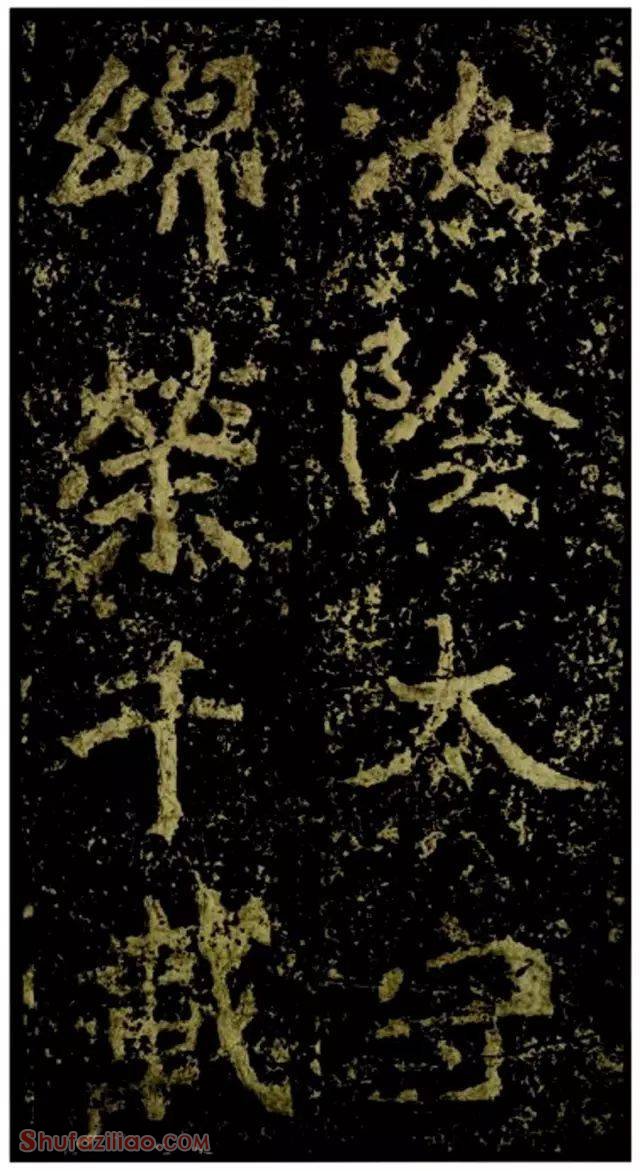 汝陰太守
綿榮千載
Shufaziliao.COM